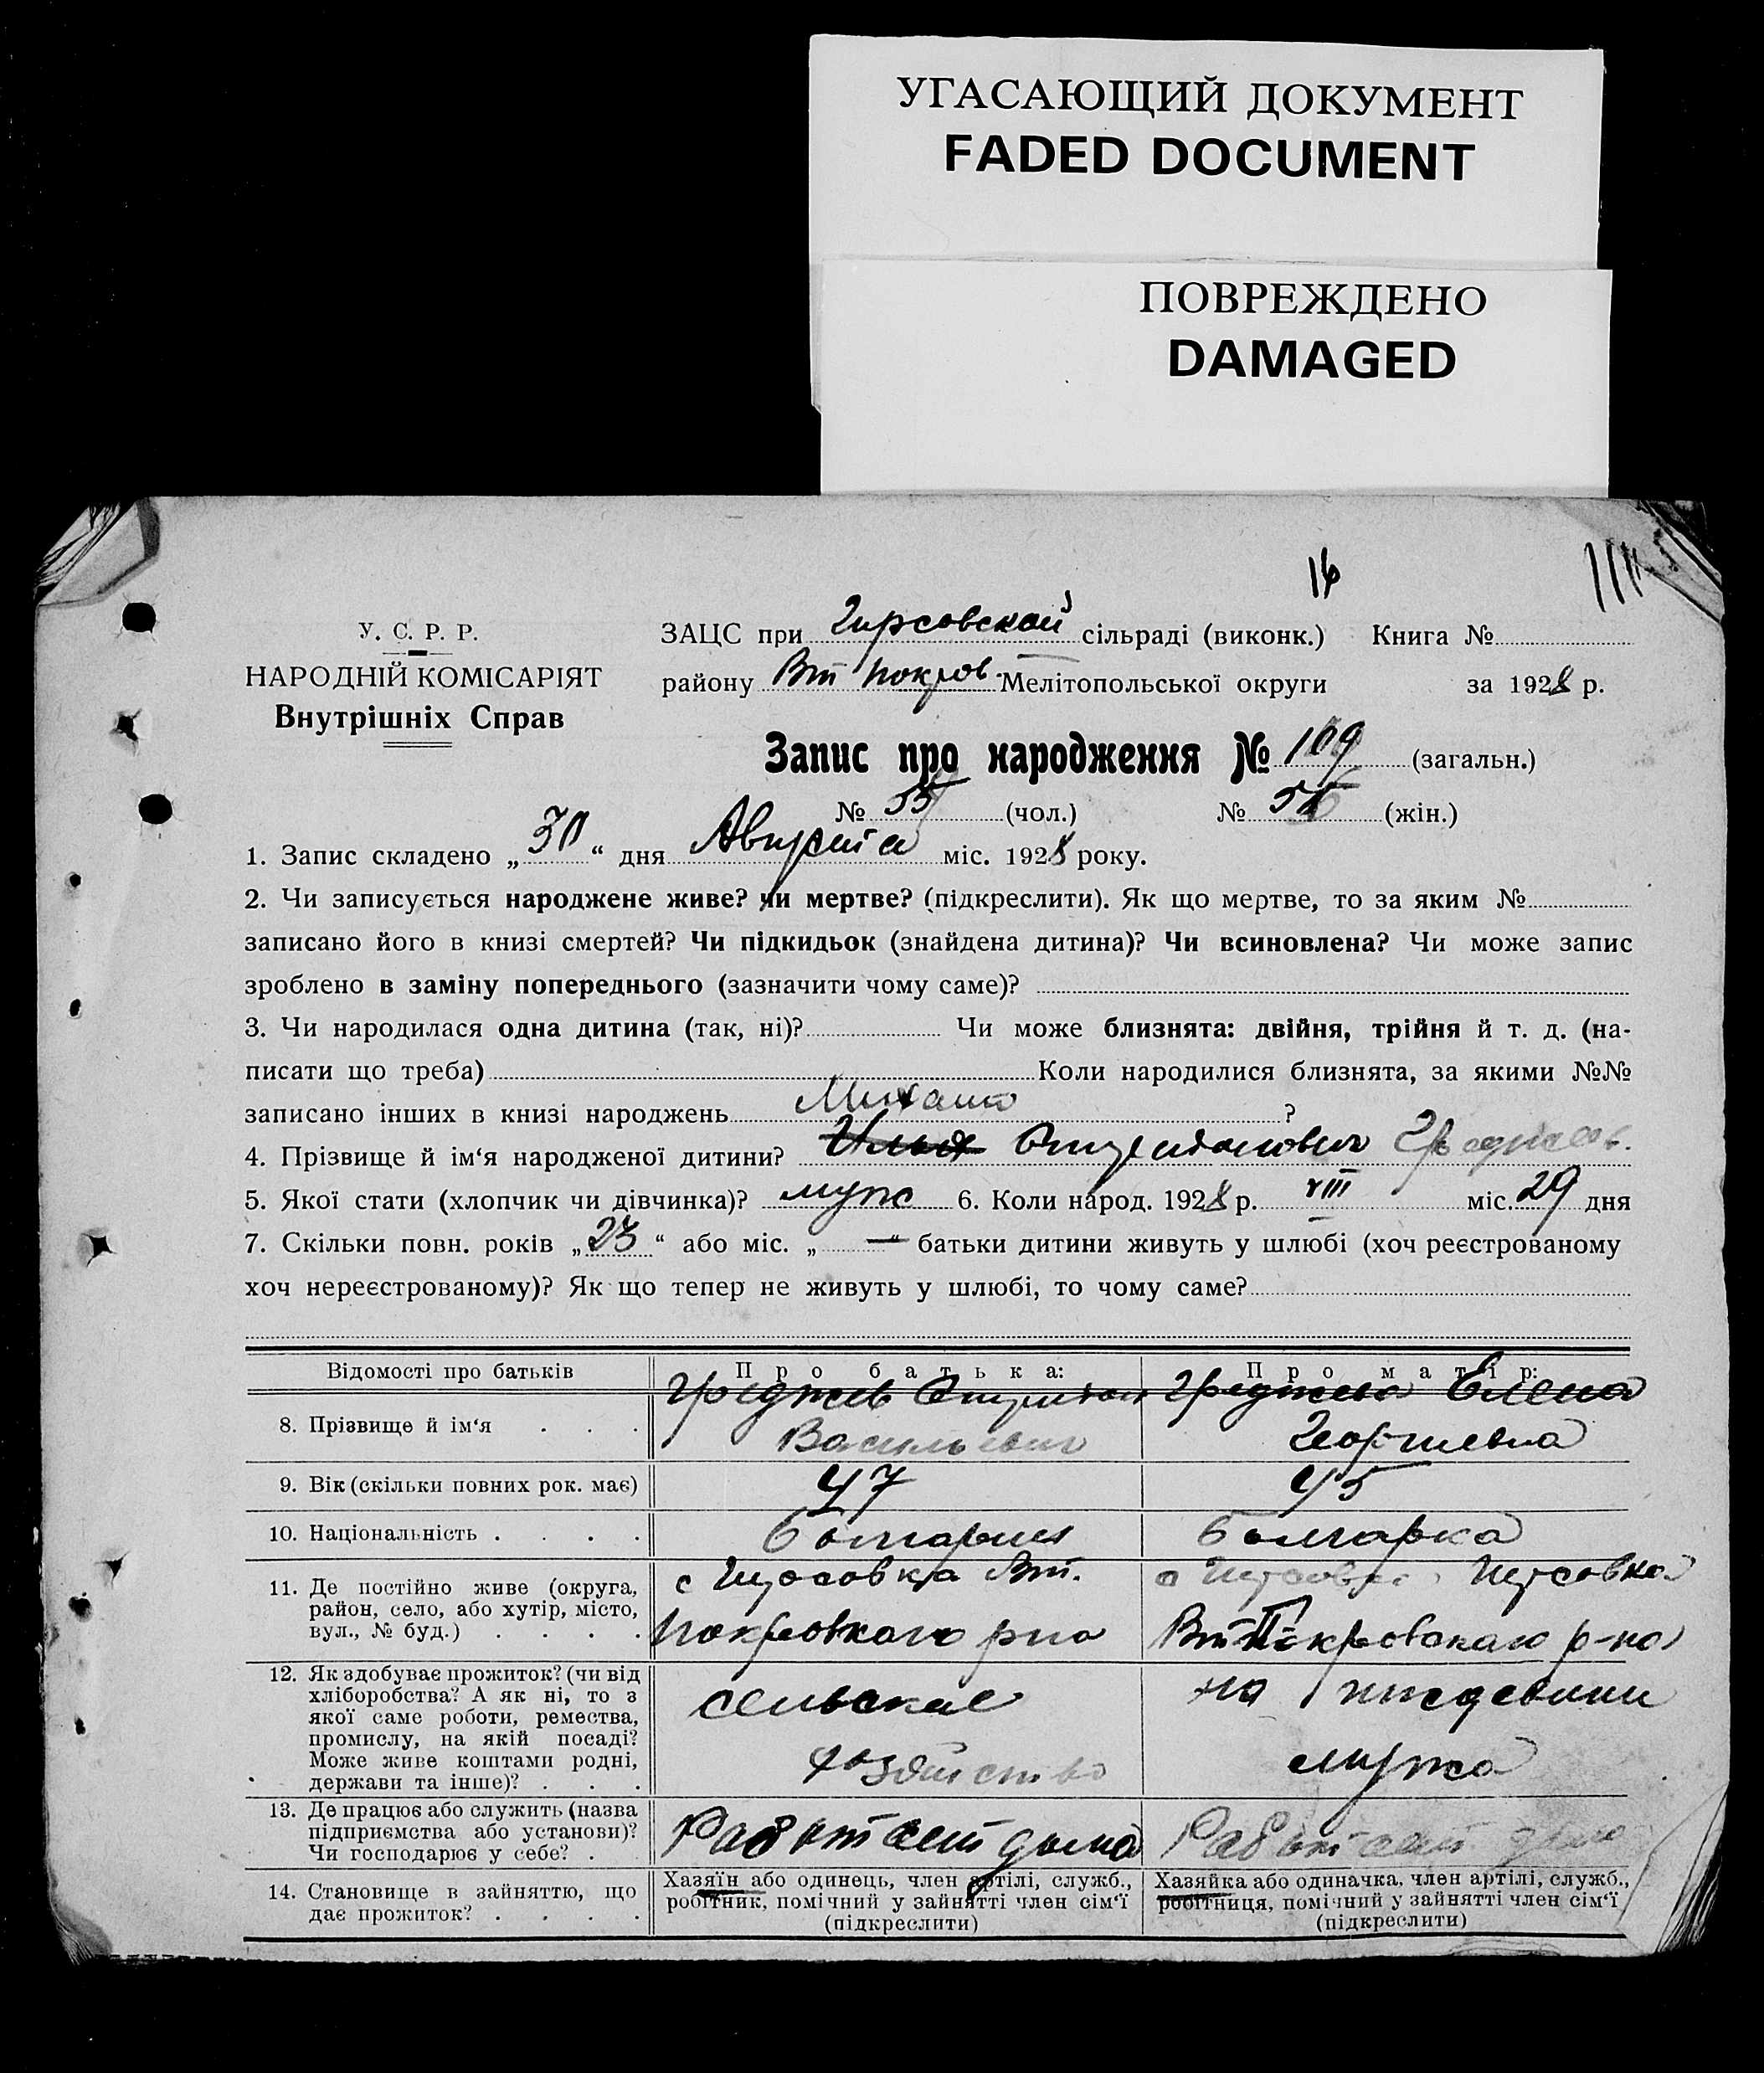 УГАСАЮЩИЙ ДОКУМЕНТ
FADED DOCUMENT
ПОВРЕЖДЕНО
DAMAGED
16
У. С. Р. Р.
НАРОДНІЙ КОМІСАРІЯТ
Внутрішніх Справ
ЗАЦС при Гирсовской сільраді (виконк.) Книга №
району Вт Покров. Мелітопольської округи за 1928 р.
Запис про народження № 109 (загальн.)
№ 55 (чол.) № (жін.)
1. Запис складено „30“ дня Августа міс. 1928 року.
2. Чи записується народжене живе? чи мертве? (підкреслити). Як що мертве, то за яким №
записано його в книзі смертей? Чи підкидьок (знайдена дитина)? Чи всиновлена? Чи може запис
зроблено в заміну попереднього (зазначити чому саме)?
3. Чи народилася одна дитина (так, ні)? Чи може близнята: двійня, трійня й т. д. (на-
писати що треба) Коли народилися близнята, за якими №№
записано інших в книзі народжень ?
4. Прізвище й ім‘я народженої дитини? Илья
5. Якої стати (хлопчик чи дівчинка)? муж 6. Коли народ. 1928 р. VIII міс. 29 дня
7. Скільки повн. років „23“ або міс. „—“ батьки дитини живуть у шлюбі (хоч реєстрованому
хоч нереєстрованому)? Як що тепер не живуть у шлюбі, то чому саме?
Відомості про батьків Про батька: Про матір:
8. Прізвище й ім‘я Елена
Васильевич Георгиевна
9. Вік (скільки повних рок. має) 47 45
10. Національність болгарин болгарка
11. Де постійно живе (округа, с Вт.
район, село, або хутір, місто,
вул., № буд.) Покровкаго рна Вт Покровскаго р-на
12. Як здобуває прожиток? (чи від
хліборобства? А як ні, то з сельское на иждевини
якої саме роботи, ремества,
промислу, на якій посаді?
Може живе коштами родні, хозяйство мужа
держави та інше)?
13. Де працює або служить (назва
підприємства або установи)? Работает дома Работает дома
Чи господарює у себе?
14. Становище в зайняттю, що
дає прожиток?
Хазяїн або одинець, член артілі, служб.,
робітник, помічний у зайнятті член сім‘ї
(підкреслити)
Хазяйка або одиначка, член артілі, служб.,
робітниця, помічний у зайнятті член сім‘ї
(підкреслити)